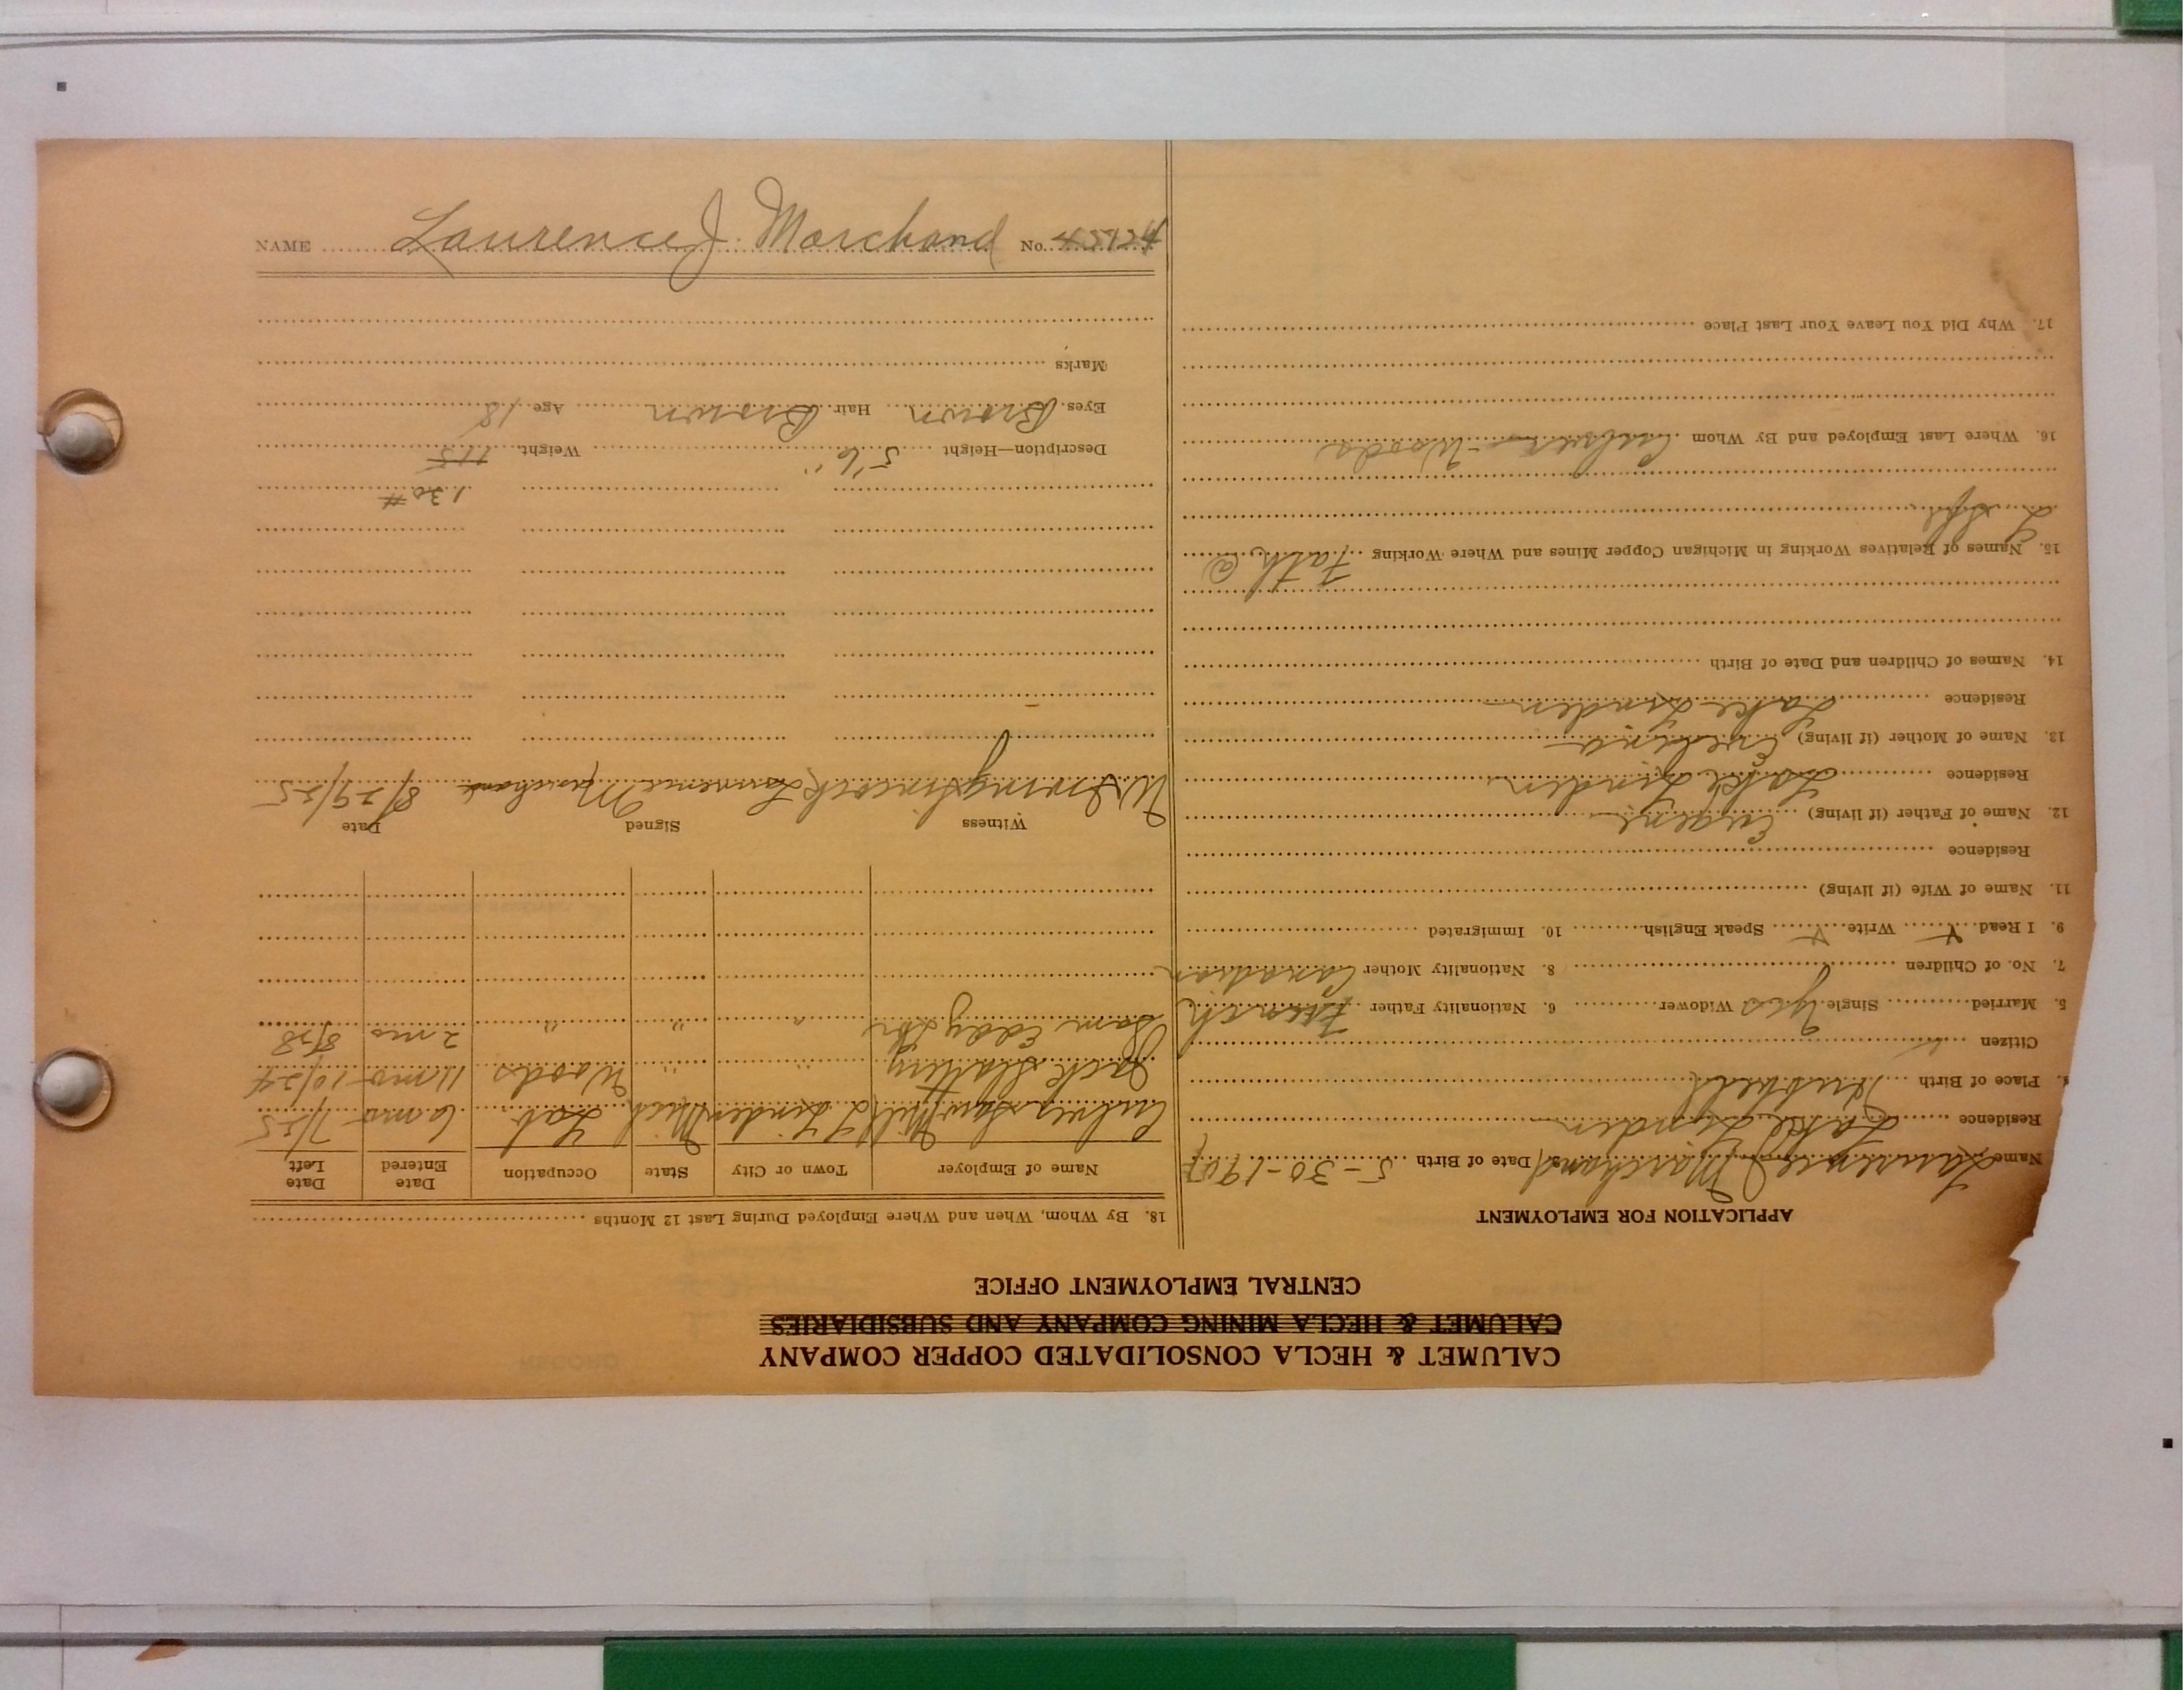 CALUMET & HECLA CONSOLIDATED COPPER COMPANY
CALUMET & HECLA MINING COMPANY AND SUBSIDIARIES
CENTRAL EMPLOYMENT OFFICE
APPLICATION FOR EMPLOYMENT
Name Laurence J Marchand Date of Birth 5-30-1907
Residence Lake Linden
4. Place of Birth Hubbell
Citizen
5. Married Single Yes Widower 6. Nationality Father French
7. No. of Children 8. Nationality Mother Canadian
9. I Read Write Speak English 10. Immigrated
11. Name of Wife (if living)
Residence
12. Name of Father (if living) Eugene
Residence Lake Linden
13. Name of Mother (if living)
Residence Lake Linden
14. Names of Children and Date of Birth
15. Names of Relatives Working in Michigan Copper Mines and Where Working Fath @
16. Where Last Employed and By Whom Woods
17. Why Did You Leave Your Last Place
18. By Whom, When and Where Employed During Last 12 Months
Name of Employer Town or City State Occupation Date Entered Date Left
Saw Mill L Linden Mich Lab 6 mo 7/25
Jack Slattery " " Woods 11 mo 10/24
Sam Eddy " " " 2 mo
Witness Signed Date
Laurence Marchand 8/29/25
130#
Description—Height 5'6" Weight 115
Eyes Brown Hair Brown Age 18
Marks
NAME Laurence J. Marchand No. 45124